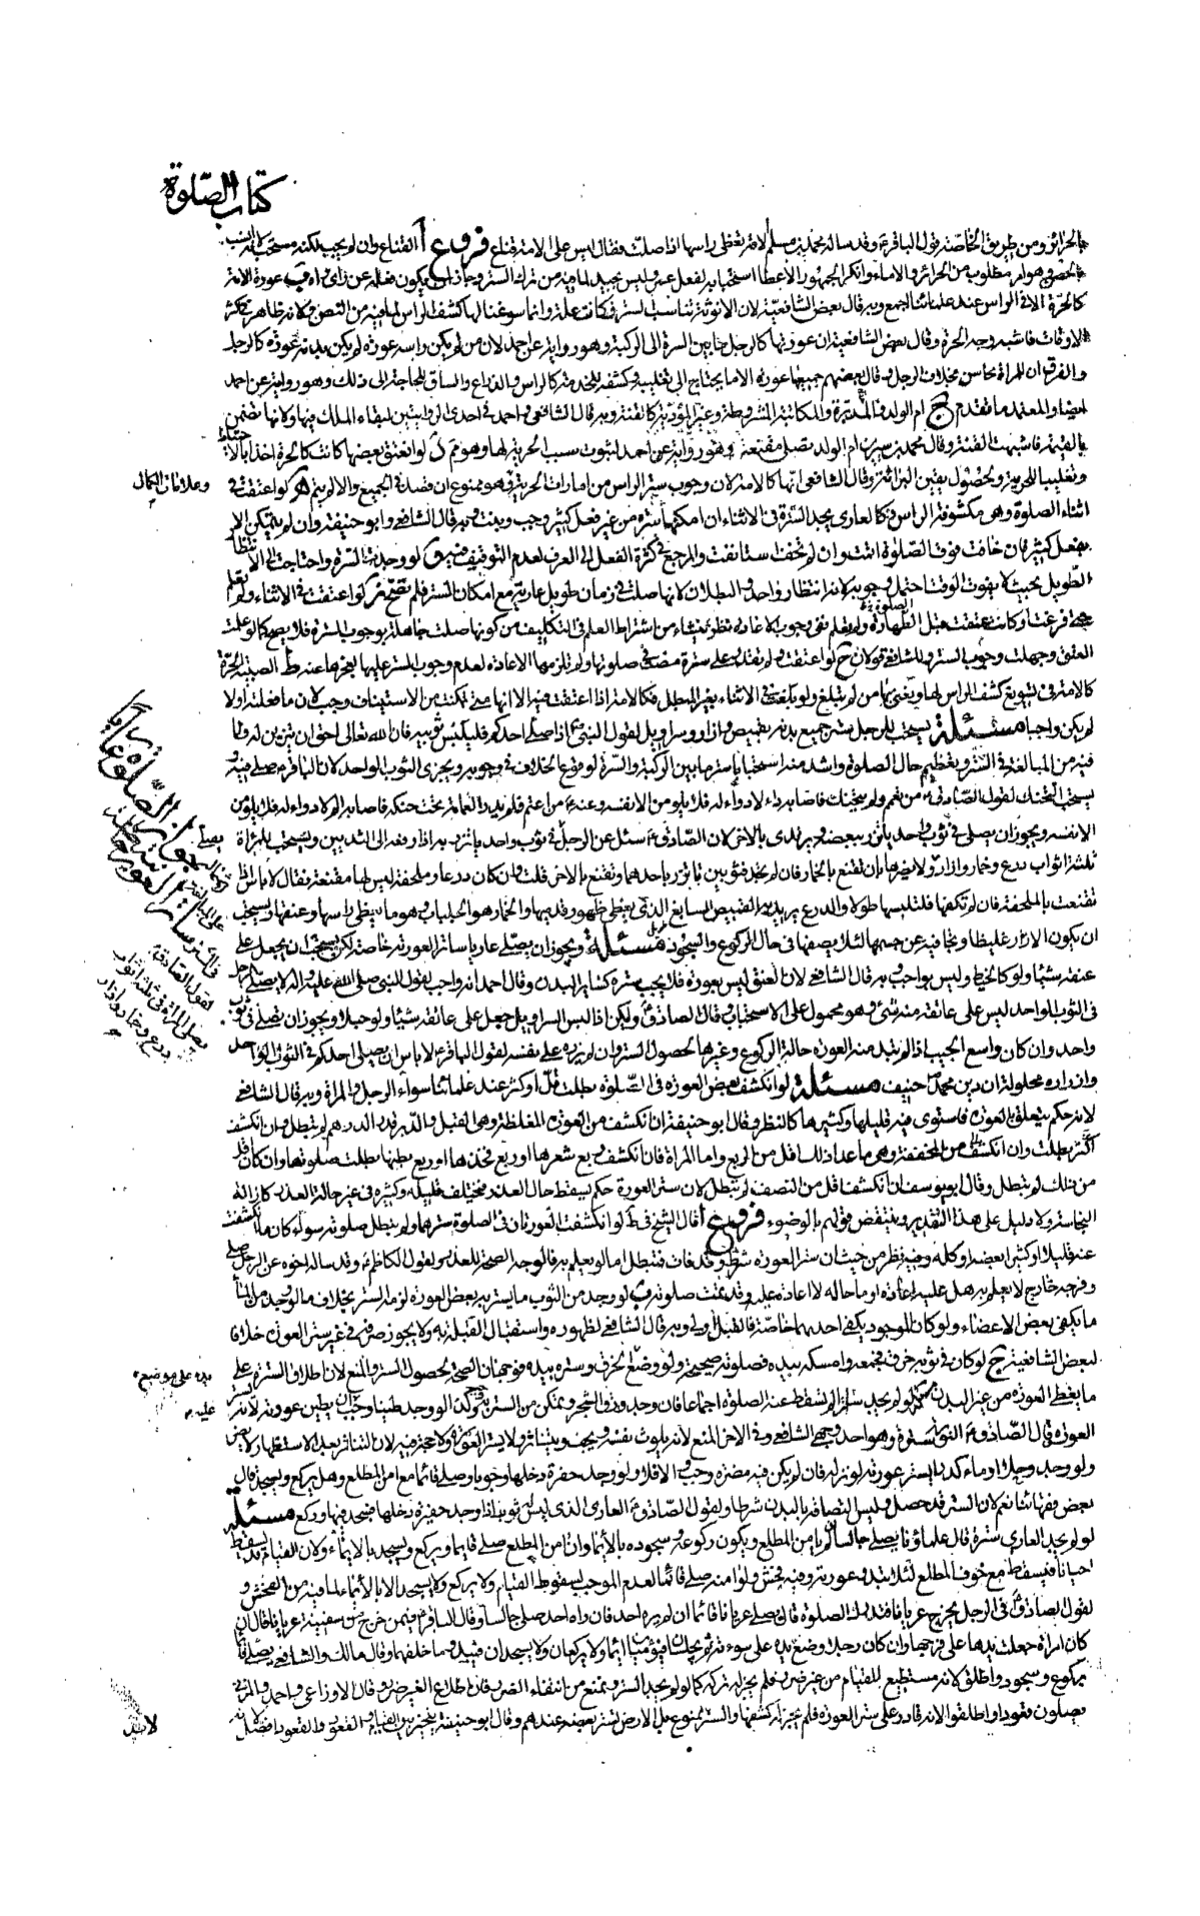 كتاب الصلوة
بالحرائر ومن طريق الخاصة قول الباقر ع وقد ساله محمد بن مسلم الامة تغطى راسها اذا صلت فقال ليس على الامة قناع فروع آ القناع وان لم يجب لكنه مستحب لانه انسب
بالخفر وهو امر مطلوب من الحرائر والاماء وانكر الجمهور الا عطا استحبابه لفعل عمر وليس بجيد لما فيه من ترك الستر وجاز ان يكون فعله عن راى راه ب عورة الامة
كالحرة الا فى الراس عند علمائنا اجمع وبه قال بعض الشافعية لان الانوثة تناسب الستر فكانت علة وانما سوغنا لها كشف الراس لما فيه من النص ولانه ظاهر فى اكثر
الاوقات فاشبه وجه الحرة وقال بعض الشافعية ان عورتها كالرجل ما بين السرة الى الركبة وهو رواية عن احمد لان من لم يكن راسه عورة لم يكن بدنه عورة كالرجل
والفرق ان المراة محاسن بخلاف الرجل وقال بعضهم جميعها عورة الا ما يحتاج الى تقليبه وكشفه للخدمة كالراس والذراع والساق للحاجة الى ذلك وهو رواية عن احمد
ايضا والمعتمد ما تقدم ج ام الولد والمدبرة والمكاتبة المشروطة وغير المؤدية كالقنة وبه قال الشافعى واحمد فى احدى الروايتين لبقاء الملك فيها ولانها تضمن
بالقيمة فاشبهت القنة وقال محمد بن سيرين ام الولد تصلى مقنعة وهو رواية عن احمد لثبوت سبب الحرية لها وهو مم د لو انعتق بعضها كانت كالحرة اخذا بالاحتياط
وتغليبا للحرية ولحصول يقين البراءة وقال الشافعى انها كالامة لان وجوب ستر الراس من امارات الحرية وهو ممنوع ان قصد فى الجميع والا لم يتم ه لو اعتقت فى
وعلامات الكمال
اثناء الصلوة وهى مكشوفة الراس فكالعارى يجد السترة فى الاثناء ان امكنها ستره من غير فعل كثير وجب وبنت وبه قال الشافعى وابو حنيفة وان لم يتمكن الا
بفعل كثير فان خافت فوت الصلوة اتمت وان لم تخف استانفت والمرجع فى كثرة الفعل الى العرف لعدم التوقيف فيه و لو وجدت السترة واحتاجت الى الانتظار
الطويل بحيث لا يفوت الوقت احتمل وجوبه لانه انتظار واحد والبطلان لانها صلت فى زمان طويل عارية مع امكان الستر فلم تصح ز لو اعتقت فى الاثناء ولم تعلم
حتى فرغت او كانت عتقت قبل الصلوة ولم تعلم ففى وجوب الاعادة نظر ينشاء من اشتراط العلم فى التكليف من كونها صلت جاهلة بوجوب السترة فلا يصح كما لو علمت
العتق وجهلت وجوب الستر وللشافعى قولان ح لو اعتقت ولم تقدر على سترة مضت فى صلوتها ولم تلزمها الاعادة لعدم وجوب الستر عليها لعجزها عنه ط الصبية الحرة
كالامة فى تسويغ كشف الراس لها ونعنى بها من لم تبلغ ولو بلغت فى الاثناء بغير المبطل فكالامة اذا اعتقت فيه الا انها متى تمكنت من الاستيناف وجب لان ما فعلته اولا
لم يكن واجبا مسئلة يستحب للرجل ستر جميع بدنه بقميص وازار وسراويل لقول النبى ص اذا صلى احدكم فليلبس ثوبيه فان الله تعالى احق ان يتزين له ولما
فيه من المبالغة فى الستر وتعظيم حال الصلوة واشد منه استحبابا ستر ما بين الركبة والسرة لوقوع الخلاف فى وجوبه ويجزى الثوب الواحد لان الباقر ع صلى فيه و
يستحب التحنك لقول الصادق ع من تعمم ولم يتحنك فاصابه داء لا دواء له فلا يلومن الا نفسه وعنه ع من اعتم فلم يدر العمامة تحت حنكه فاصابه الم لا دواء له فلا يلومن
الا نفسه ويجوز ان يصلى فى ثوب واحد ياتزر ببعضه ويرتدى بالاخر لان الصادق ع سئل عن الرجل فى ثوب واحد ياتزر به اذا رفعه الى الثديين ويستحب للمراة
ثلثة اثواب درع وخمار وازار
تقنعت بالملحفة فان لم تكفها فلتلبسها طولا والدرع يريد به القميص السابغ الذى يغطى ظهور قدميها والخمار هو الجلباب وهو ما يغطى راسها وعنقها ويستحب
ان يكون الازار غليظا وتجافيه عن جسمها لئلا يصفها فى حال الركوع والسجود مسئلة ويجوز ان يصلى عاريا ساتر العورة خاصة لكن يستحب ان يجعل على
عنقه شيئا ولو كالخيط وليس بواجب وبه قال الشافعى لان العنق ليس بعورة فلا يجب ستره كساير البدن وقال احمد انه واجب لقول النبى صلى الله عليه واله لا يصلى الرجل
فى الثوب الواحد ليس على عاتقه منه شئ وهو محمول على الاستحباب وقال الصادق ع ولكن اذا لبس السراويل جعل على عاتقه شيئا ولو حبلا ويجوز ان يصلى فى ثوب
واحد وان كان واسع الجيب اذا لم تبد منه العورة حالة الركوع وغيرها لحصول الستر وان لم يزره على نفسه لقول الباقر ع لا باس ان يصلى احدكم فى الثوب الواحد
وازراره محلولة ان دين محمد ص حنيف مسئلة لو انكشف بعض العورة فى الصلوة بطلت قل او كثر عند علمائنا سواء الرجل والمراة وبه قال الشافعى
لانه حكم يتعلق بالعورة فاستوى فيه قليلها وكثيرها كالنظر وقال ابو حنيفة ان انكشف من العورة المغلظة وهى القبل والدبر قدر الدرهم لم تبطل وان انكشف
اكثر بطلت وان انكشف من المخففة وهى ما عدا ذلك اقل من الربع واما المراة فان انكشف ربع شعرها او ربع فخذها او ربع بطنها بطلت صلوتها وان كان اقل
من ذلك لم تبطل وقال ابو يوسف ان انكشف اقل من النصف لم تبطل لان ستر العورة حكم يسقط حال العذر فيختلف قليله وكثيره فى غير حالة العذر كازالة
النجاسة ولا دليل على هذا التقدير وينتقض قولهم بالوضوء فروع آ قال الشيخ فى ط لو انكشفت العورتان فى الصلوة سترهما ولم تبطل صلوته سواء كان ما انكشفت
عنه قليلا او كثيرا بعضه او كله وفيه نظر من حيث ان ستر العورة شرط وقد فات فتبطل اما لو لم يعلم به فالوجه الصحة للعذر ولقول الكاظم ع وقد ساله اخوه عن الرجل صلى
وفرجه خارج لا يعلم به هل عليه اعادة او ما حاله لا اعادة عليه وقد تمت صلوته ب لو وجد من الثوب ما يستر به بعض العورة لزمه الستر بخلاف ما لو وجد من الماء
ما يكفى بعض الاعضاء ولو كان الموجود يكفى احديهما خاصة فالقبل اولى وبه قال الشافعى لظهوره واستقبال القبلة به ولا يجوز صرفه فى غير ستر العورة خلافا
لبعض الشافعية ج لو كان فى ثوبه خرق فجمعه وامسكه بيده فصلوته صحيحة ولو وضع الخرق وستره بيده فوجهان الصحة لحصول الستر والمنع لان اطلاق السترة على
يده على موضع
ما يغطى العورة من غير البدن مسئلة لو لم يجد ساترا لم تسقط عنه الصلوة اجماعا فان وجد ورق الشجر وتمكن من الستر به وجب وكذا لو وجد طينا وجب ان يطين عورته لانه ستر
عليه
العورة
ولو وجد وحلا او ماء كدرا يستر عورته لو نزله فان لم يكن فيه مضرة وجب والا فلا ولو وجد حفرة دخلها وجوبا وصلى قائما مع امن المطلع وهل يركع ويسجد قال
بعض فقهائنا نعم لان الستر قد حصل وليس التصاقه بالبدن شرطا ولقول الصادق ع العارى الذى ليس له ثوب اذا وجد حفيرة دخلها فسجد فيها وركع مسئلة
لو لم يجد العارى سترة قال علماؤنا يصلى جالسا ان لم يامن المطلع ويكون ركوعه وسجوده بالايماء وان امن المطلع صلى قايما ويركع ويسجد بالايماء ولان القيام قد يسقط
احيانا فيسقط مع خوف المطلع لئلا تبدو عورته وفيه فحش ولو امنه صلى قائما لعدم الموجب لسقوط القيام ولا يركع ولا يسجد الا بالايماء لما فيه من الفحش و
لقول الصادق ع فى الرجل يخرج عريانا فتدركه الصلوة قال يصلى عريانا قائما ان لم يره احد فان راه احد صلى جالسا وقال الباقر ع فيمن خرج من سفينة عريانا قال ان
كان امراة جعلت يدها على فرجها وان كان رجلا وضع يده على سوءته ثم يجلسان فيوميان ايماء ولا يركعان ولا يسجدان فيبدو ما خلفهما وقال مالك والشافعى يصلى قائما
بركوع وسجود واطلق لانه مستطيع للقيام من غير ضرر فلم يجز له تركه كما لو لم يجد الستر ويمنع من انتفاء الضرر فان اطلاع الغير ضرر وقال الاوزاعى واحمد والمزنى
يصلون قعودا واطلقوا لانه قادر على ستر العورة فلم يجز له كشفها والستر ممنوع وقال ابو حنيفة يتخير بين القيام والقعود والقعود افضل لانه
لا بد